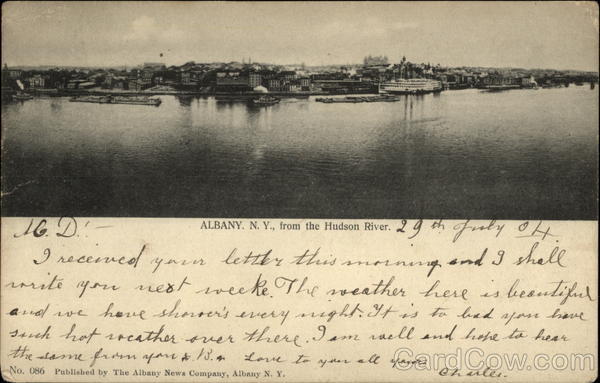 ALBANY. N. Y., from the Hudson River.
M. D:- 29th July 04
I received your letter this morning and I shall
write you next weeke. The weather here is beautiful
and we have shower's every night. It is to bad you have
such hot weather over there. I am well and hope to hear
the same from you & B. & Love to you all yours
Charles.
No. 086 Published by The Albany News Company, Albany N. Y.
CardCow.com